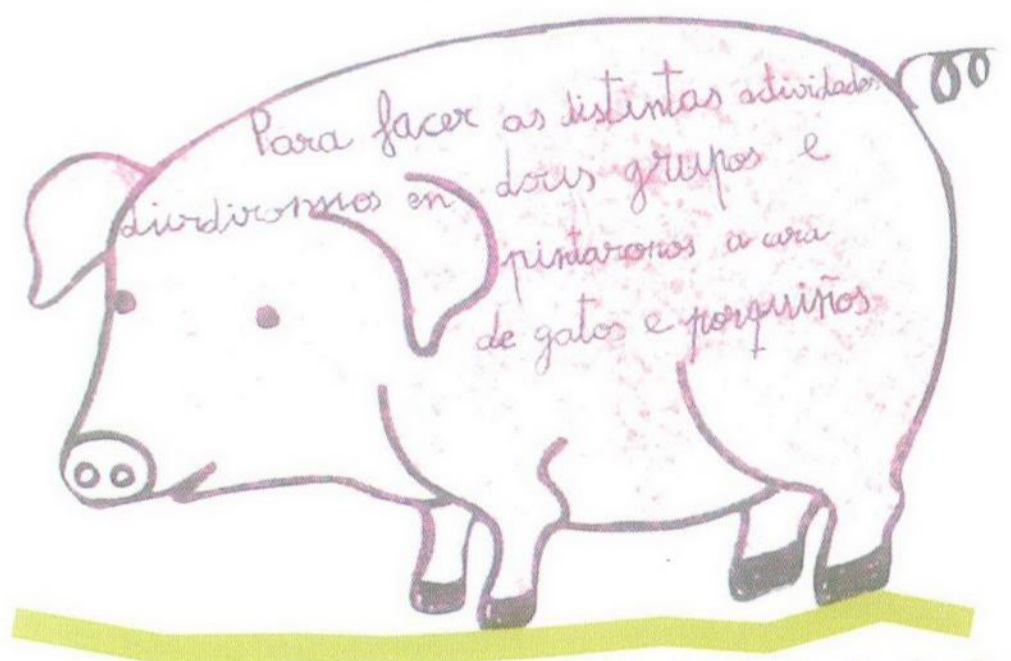 Para facer as distintas actividades
divdironnos en dous grupos e
pintaronos a cara
de gatos e porquiños